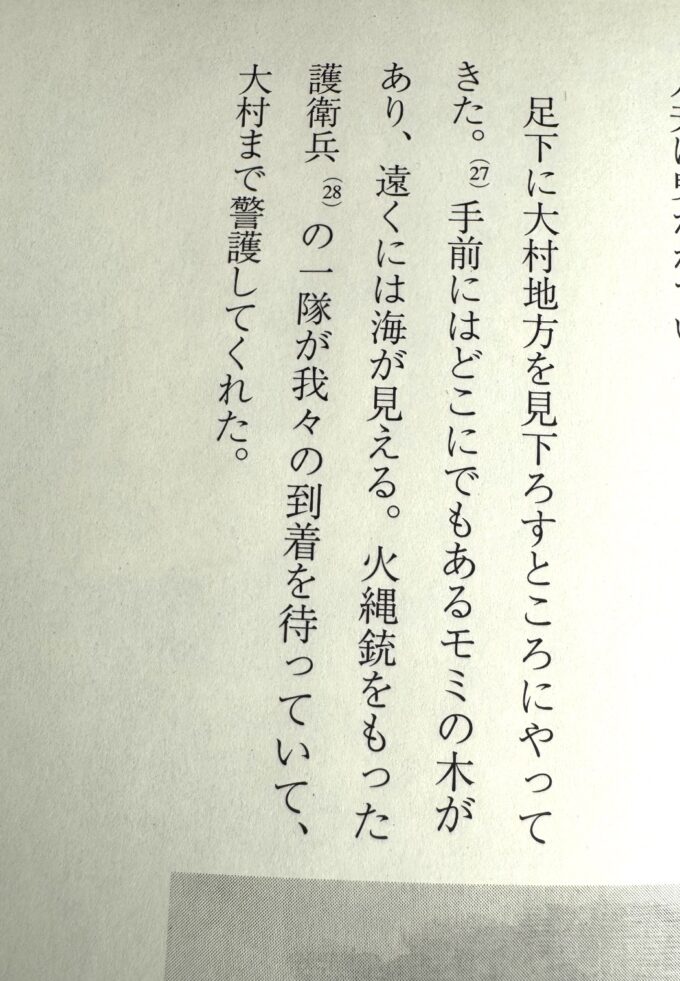 足下に大村地方を見下ろすところにやって
きた。(27)手前にはどこにでもあるモミの木が
あり、遠くには海が見える。火縄銃をもった
護衛兵(28)の一隊が我々の到着を待っていて、
大村まで警護してくれた。